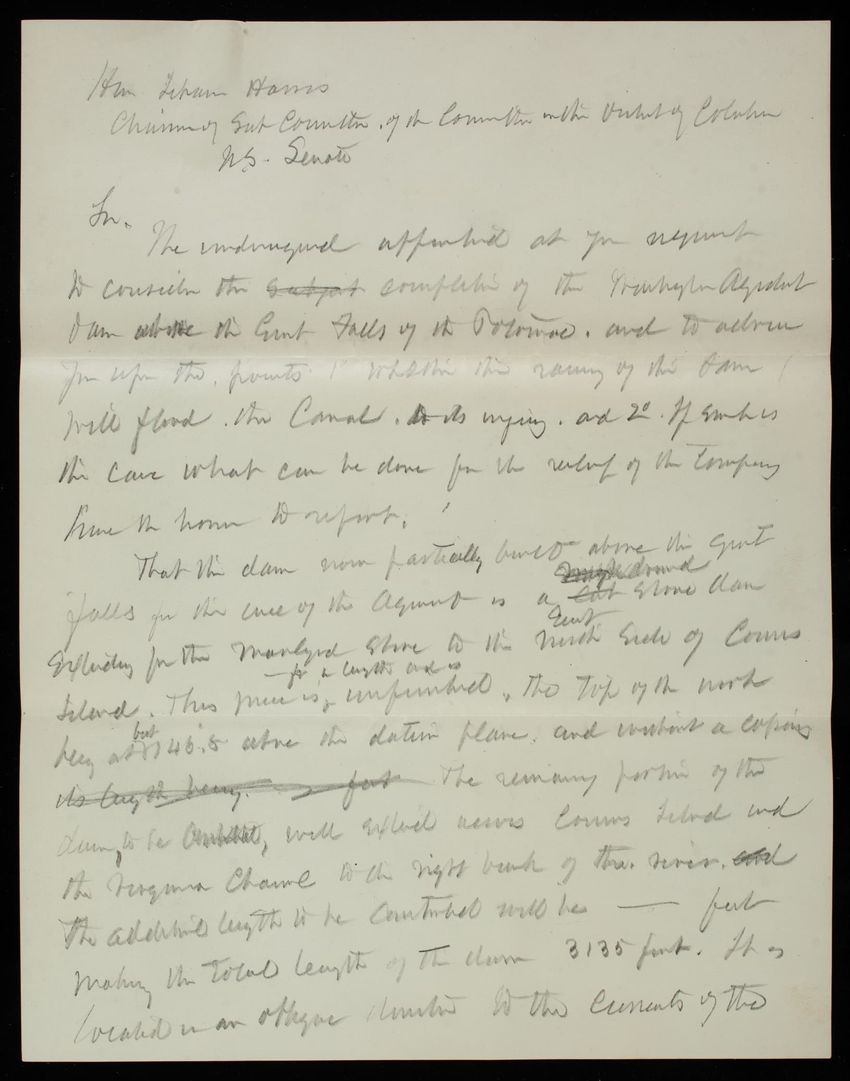 Hon Isham Harris
Chairman of Sub Committee of the Committee on the District of Columbia
U.S. Senate
Sir.
The undersigned appointed at your request
to consider the subject completion of the Washington Aqueduct
dam above the Great Falls of the Potomac. and to advise
you upon the points 1st whether the raising of the dam
will flood the Canal. to its injury. and 2d. If such is
the case what can be done for the relief of the Company
have the honor to report.
That the dam now partially built above the Great
falls for the use of the Aqueduct is a cut stone dam
rough
Extending from the Maryland Shore to the North Side of Conns
East
Island. This piece is, unfinished, the top of the work
for a length and is
being at 148.5 above the datum plane. and without a coping
but
its length being feet The remaining portion of the
dam, to be, will extend across Conns Island and
the Virginia Channel to the right bank of the river. and
The additional length to be constructed will be — feet
making the total length of the dam 3135 feet. It is
located in an oblique direction to the currents of the